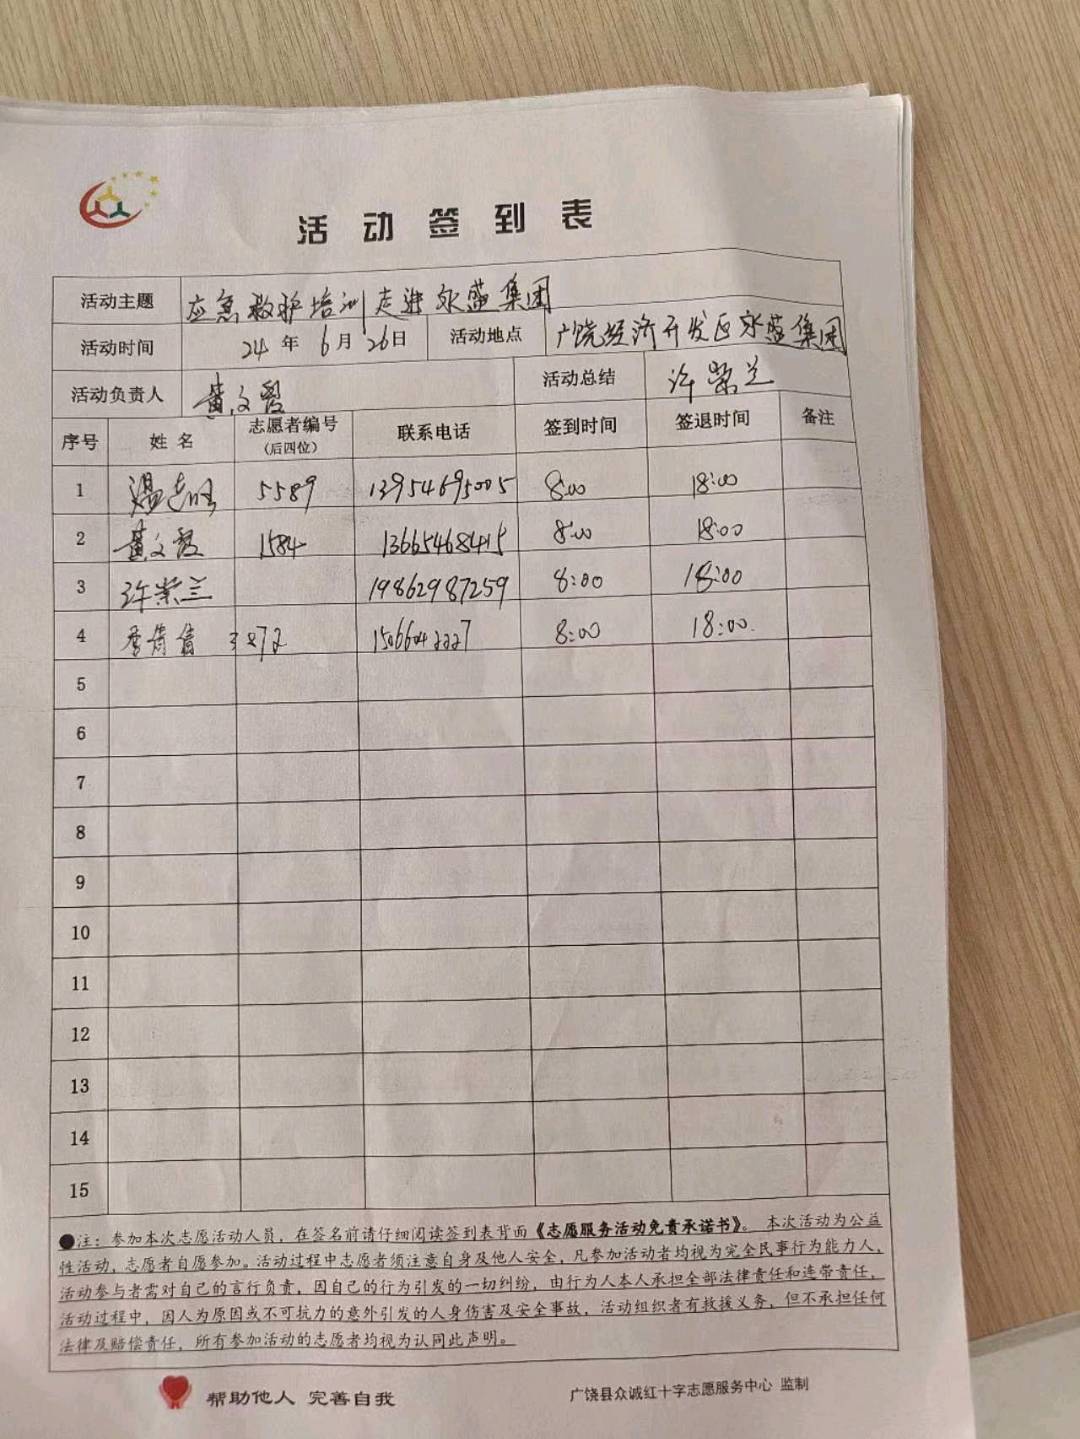 活动签到表
活动主题 应急救护培训走进永盛集团
活动时间 24年6月26日 活动地点 广饶经济开发区永盛集团
活动负责人 黄文霞 活动总结 许荣兰
序号 姓名 志愿者编号(后四位) 联系电话 签到时间 签退时间 备注
1 温志 5589 13954695005 8:00 18:00
2 黄文霞 1584 13665468415 8:00 18:00
3 许荣兰 19862987259 8:00 18:00
4 3872 15066042227 8:00 18:00
5
6
7
8
9
10
11
12
13
14
15
●注:参加本次志愿活动人员,在签名前请仔细阅读签到表背面《志愿服务活动免责承诺书》。本次活动为公益
性活动,志愿者自愿参加。活动过程中志愿者须注意自身及他人安全,凡参加活动者均视为完全民事行为能力人,
活动参与者需对自己的言行负责,因自己的行为引发的一切纠纷,由行为人本人承担全部法律责任和连带责任,
活动过程中,因人为原因或不可抗力的意外引发的人身伤害及安全事故,活动组织者有救援义务,但不承担任何
法律及赔偿责任,所有参加活动的志愿者均视为认同此声明。
帮助他人 完善自我 广饶县众诚红十字志愿服务中心 监制